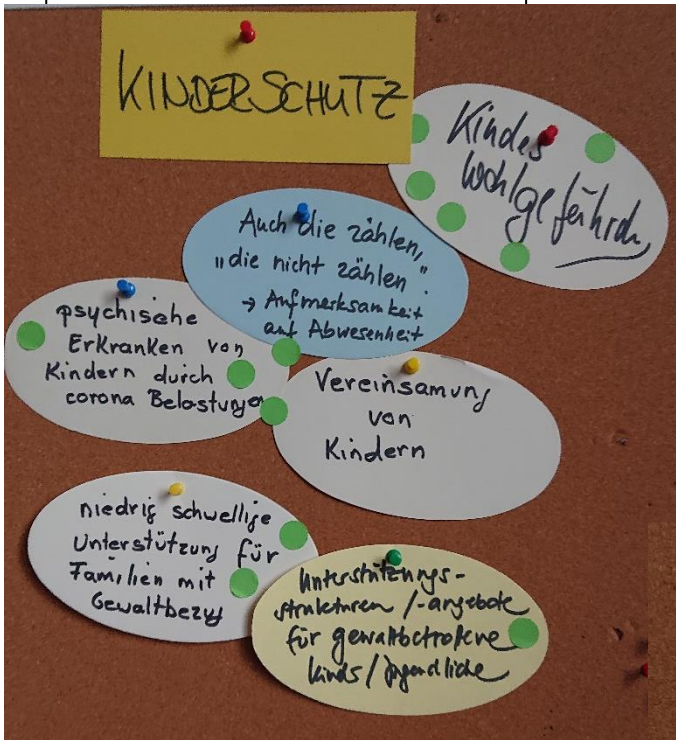 KINDERSCHUTZ
Kindes
wohlgefährd
Auch die zählen,
"die nicht zählen".
→ Aufmerksamkeit
auf Abwesenheit
psychische
Erkranken von
Kindern durch
corona Belastungen
Vereinsamung
von
Kindern
niedrig schwellige
Unterstützung für
Familien mit
Gewaltbezug
Unterstützungs-
strukturen /-angebote
für gewaltbetroffene
kinds / jugendliche